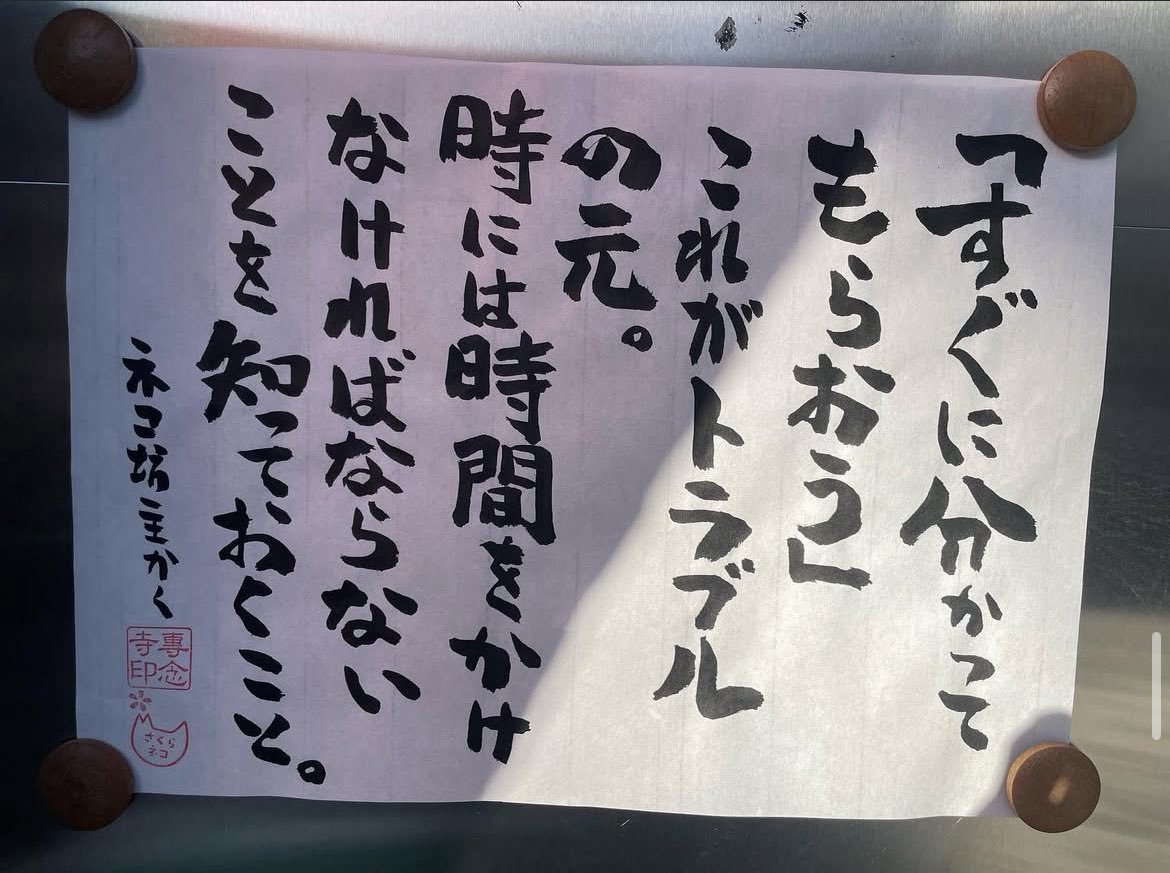 「すぐに分かって
もらおう」
これがトラブル
の元。
時には時間をかけ
なければならない
ことを知っておくこと。
ネコ坊主かく
專念
寺印
さくら
ネコ